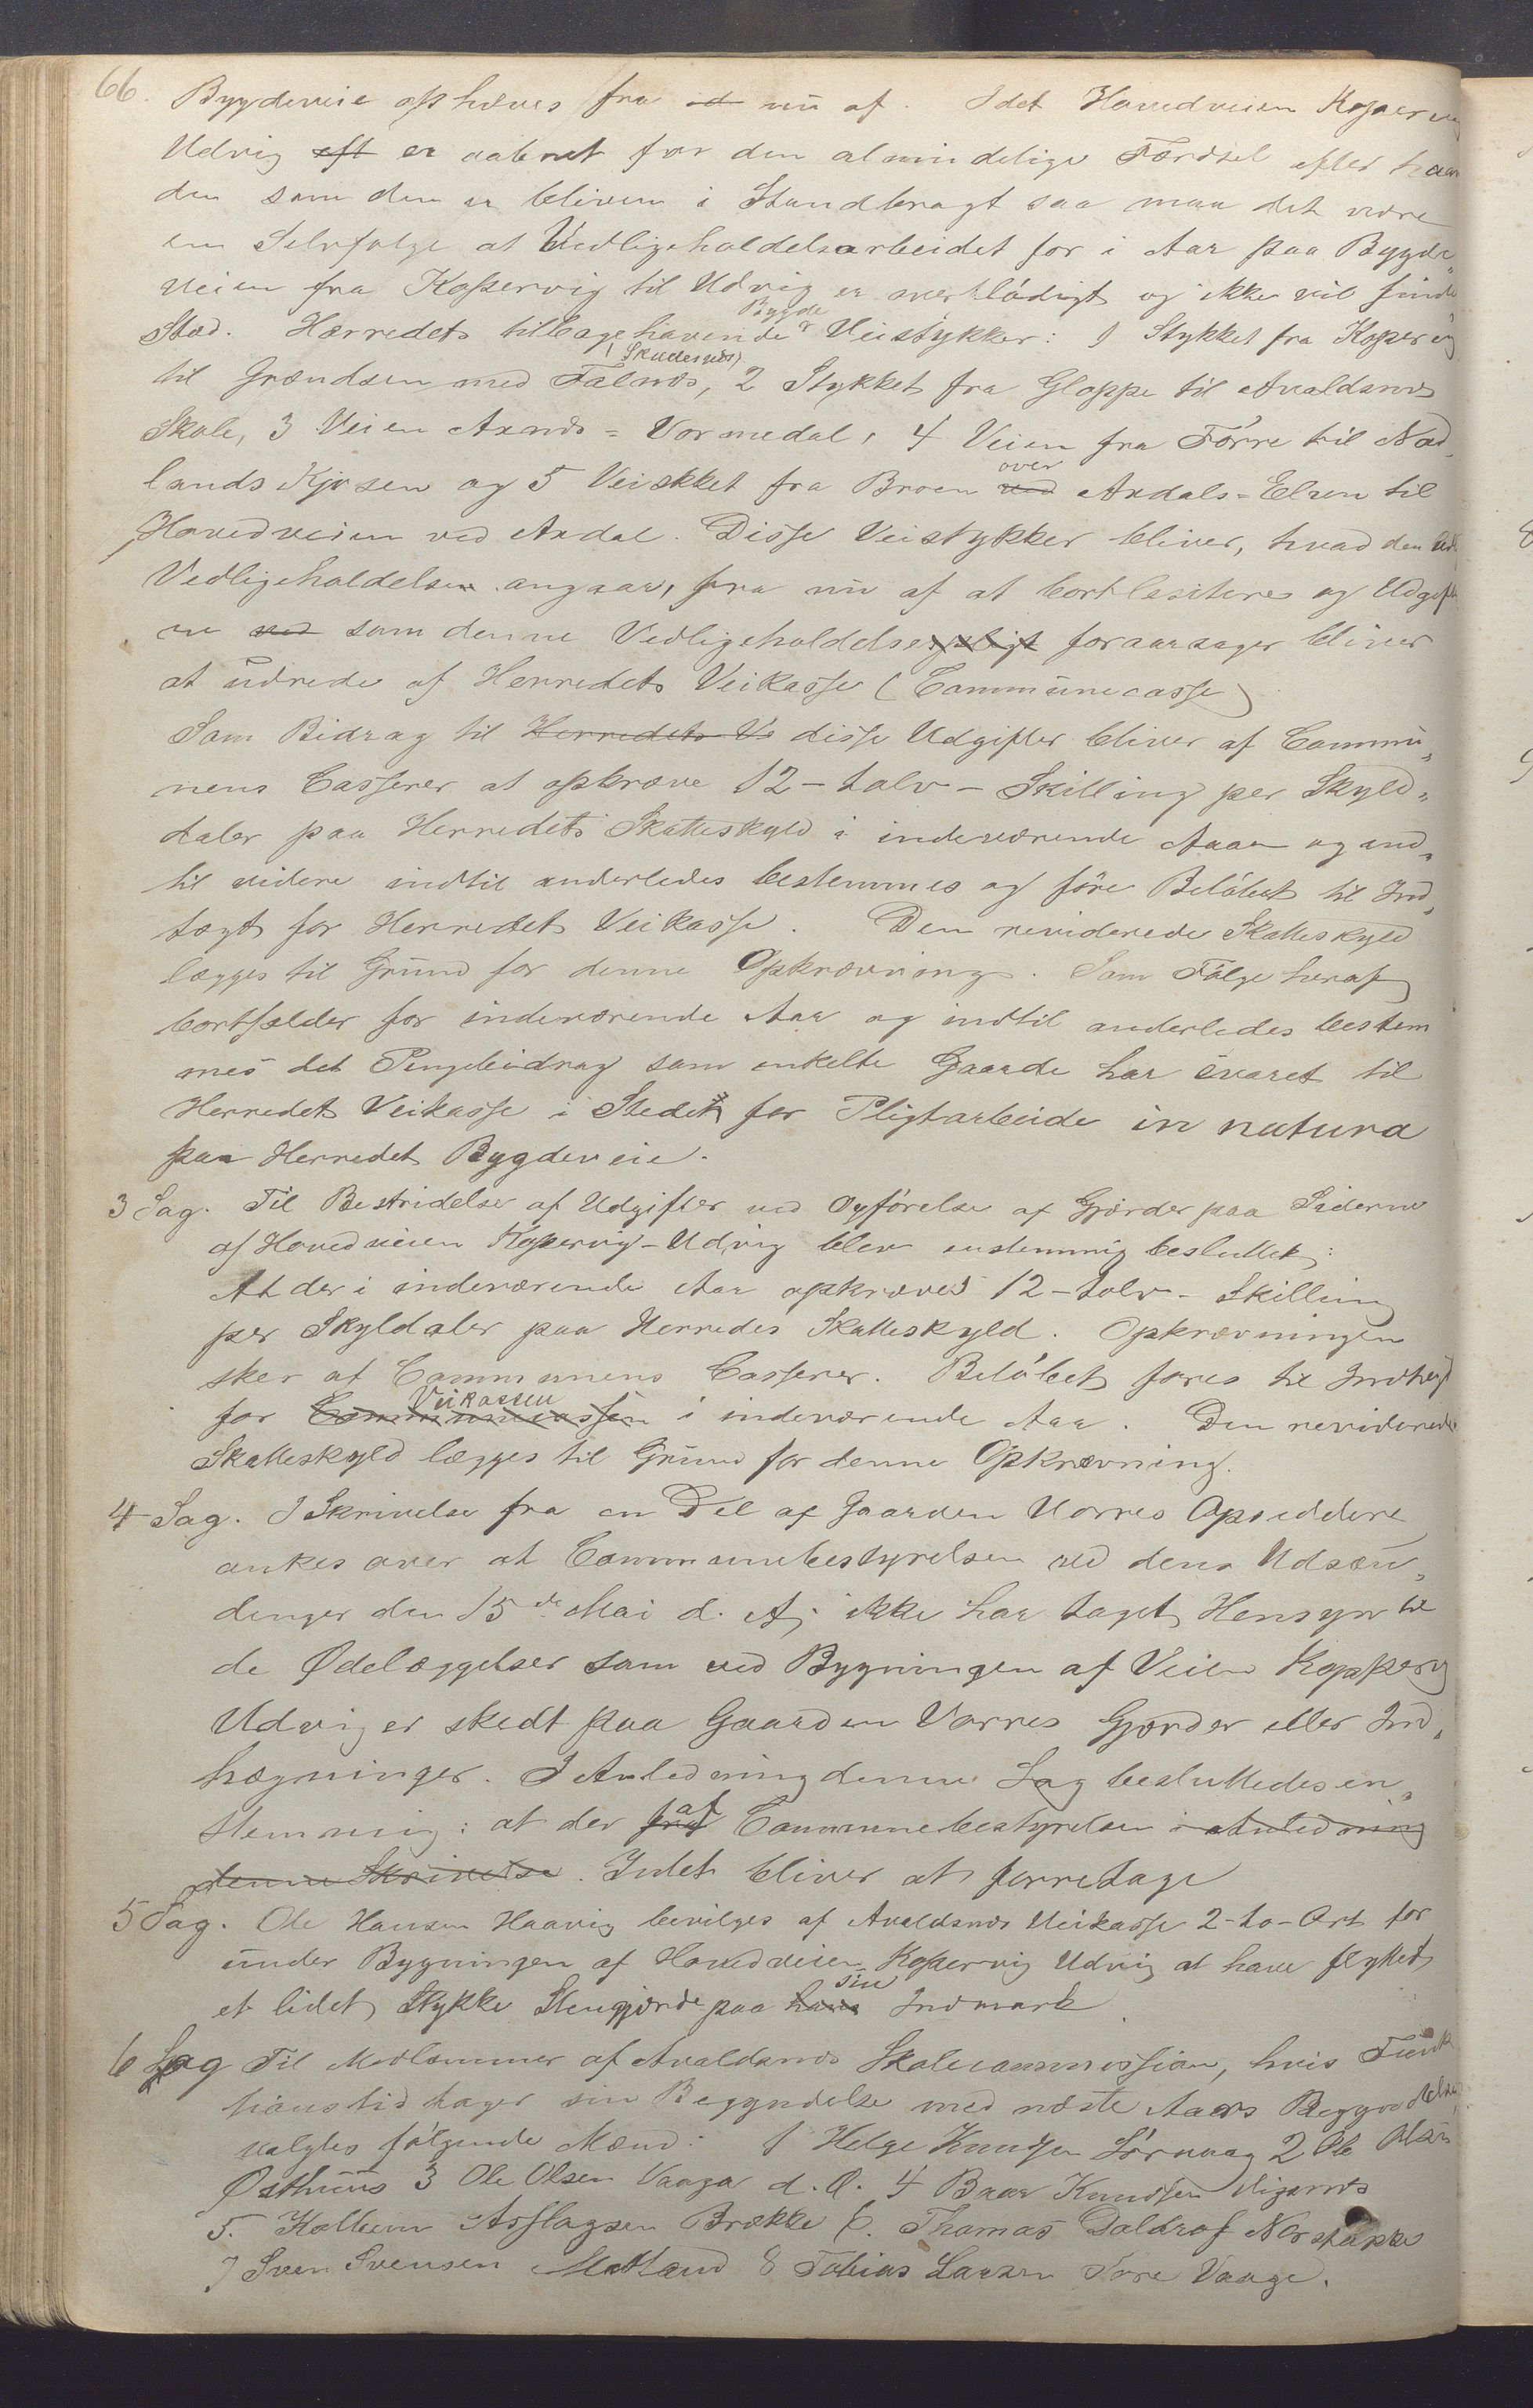 66. Bygdeveie ophæves fra nu af. Idet Hovedveien Kopervig
Udvig er aabnet for den almindelige Færdsel efter haan
den som den er bleven i Standbragt saa maa det være
en Selvfølge at Vedligeholdelsarbeidet for i Aar paa Bygde„
veien fra Kopervig til Udvig er overflødigt og ikke vil finde
Sted. Herredets tilbagehavende Bygde Veistykker: 1 Stykket fra Kopervig
til Grændsen med Falnæs, (Skudesnæs) 2 Stykket fra Gloppe til Avaldsnæs
Skole, 3 Veien Axnæs = Vormedal, 4 Veien fra Førre til Nad„
lands Kjosen og 5 Veiskket fra Broen over Axdals=Elven til
Hovedveien ved Axdal. Disse Veistykker bliver, hvad den
Vedligeholdelsen angaar, fra nu af at bortlesitere og Udgift
ne som denne Vedligeholdelse foraarsager bliver
at udrede af Herredets Veikasse (Communecasse)
Som Bidrag til Herredets Ve disse Udgifter bliver af Commu„
nens Casserer at opkræve 12 - tolv - Skilling per Skyld„
daler paa Herredets Skatteskyld i indeværende Aaar og ind„
til videre indtil anderledes bestemmes og føre Beløbet til Ind„
tægt for Herredets Veikasse. Den reviderede Skatteskyld
lægges til Grund for denne Opkrævning. Som Følge heraf
bortfalder for indeværende Aar og indtil anderledes bestem
mes det Pengebidrag som enkelte Gaarde har svaret til
Herredets Veikasse i Stedet for Pligtarbeide in natura
paa Herredets Bygdeveie.
3 Sag. Til Bestridelse af Udgifter ved Opførelse af Gjærder paa Siderne
af Hovedveien Kopervig-Udvig blev enstemmig besluttet:
At der i indeværende Aar opkræves 12 - tolv - Skilling
per Skyldaler paa Herredes Skatteskyld. Opkrævningen
sker af Communens Casserer. Beløbet føres til Indtægt
for Communecassen Veikassen i indeværende Aar. Den reviderede
Skatteskyld lægges til Grund for denne Opkrævning.
4 Sag. I Skrivelse fra en Del af Gaarden Vorres Opsiddere
ankes over at Communebestyrelsen ved dens Udsæn„
denger den 15de Mai d. A. ikke har taget Hensyn til
de Ødelæggelser som ved Bygningen af Veien Kopperv
Udvig er skedt paa Gaarden Vorres Gjærder eller Ind„
hægninger. I Anledning denne Sag besluttedes en„
stemmig: at der af Communebestyrelsen i Anledning
denne Skrivelse. Intet bliver at forretage
5 Sag. Ole Hansen Haavig bevilges af Avaldsnæs Veikasse 2-to-Ort for
under Bygningen af Hovedveien Kopervig Udvig at have flyttet
et lidet Stykke Stengjærde paa hans sin Indmark
6 Sag Til Medlemmer af Avaldsnæs Skolecommission, hvis Funk
tionstid tager sin Begyndelse med næste Aaars Begyndelse,
valgtes følgende Mænd: 1 Helge Knudsen Sørvaag 2 Ole Olsen
Østhuus 3 Ole Olsen Vaaga d. Æ. 4 Baar Knudsen Vignæs
5. Kolbein Asslagsen Brække 6. Thomas Doldraf Norstokke
7 Sven Svensen Matland 8 Tobias Larsen Tore Vaage.